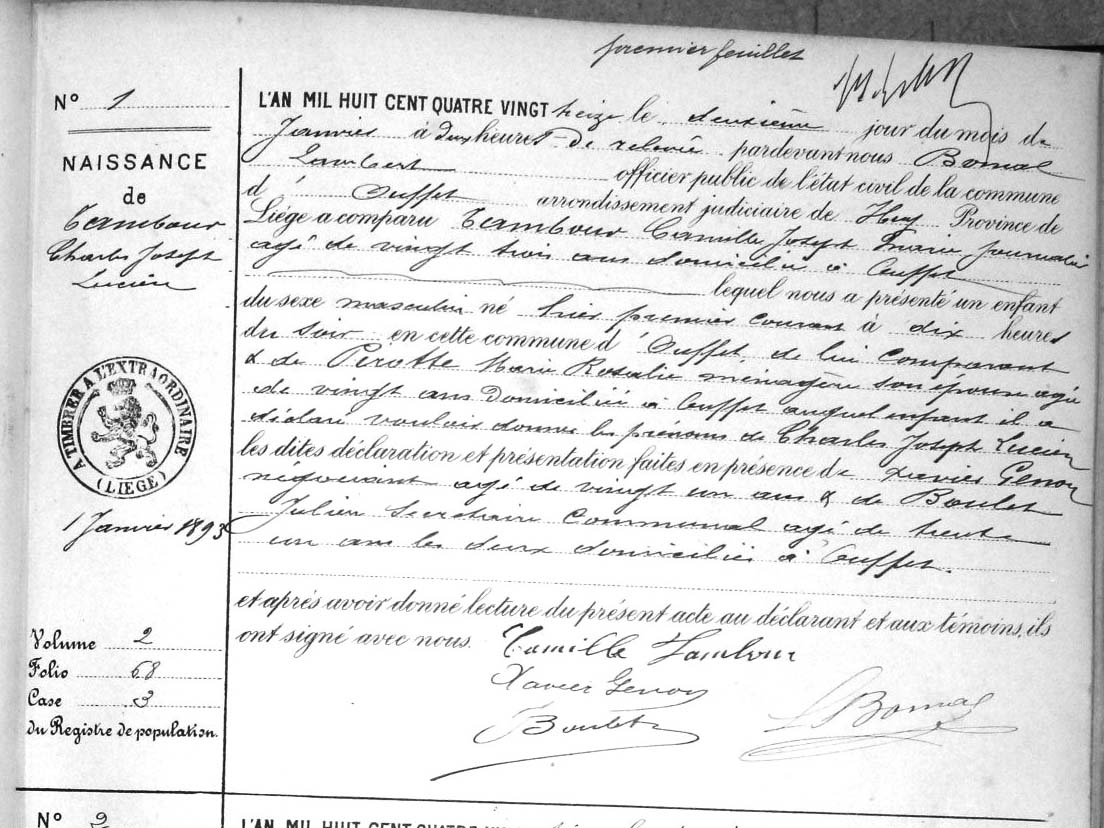 premier feuillet
N° 1
NAISSANCE
de
Tambour
Charles Joseph
Lucien
A TIMBRER A L'EXTRAORDINAIRE
(LIEGE)
1 Janvier 1893
Volume 2
Folio 68
Case 3
du Registre de population.
L'AN MIL HUIT CENT QUATRE VINGT treize le deuxième jour du mois de
Janvier à deux heures de relevée pardevant nous Bomal
Lambert officier public de l'état civil de la commune
d' Ouffet arrondissement judiciaire de Huy Province de
Liége a comparu Tambour Camille Joseph Marie journalier
agé de vingt trois ans domicilié à Ouffet
lequel nous a présenté un enfant
du sexe masculin né hier premier courant à dix heures
du soir en cette commune d' Ouffet, de lui comparant
& de Perotte Marie Rosalie ménagère son épouse agée
de vingt ans Domiciliée à Ouffet auquel enfant il a
déclaré vouloir donner les prénoms de Charles Joseph Lucien
les dites déclaration et présentation faites en présence de Xavier Genon
négociant agé de vingt un ans & de Boulet
Julien Secrétaire Communal agé de trente
un ans les deux domiciliés à Ouffet.
et aprés avoir donné lecture du présent acte au déclarant et aux témoins, ils
ont signé avec nous. Camille Tambour
Xavier Genon
J Boulet
L Bomal
N° 2
L'AN MIL HUIT CENT QUATRE VINGT